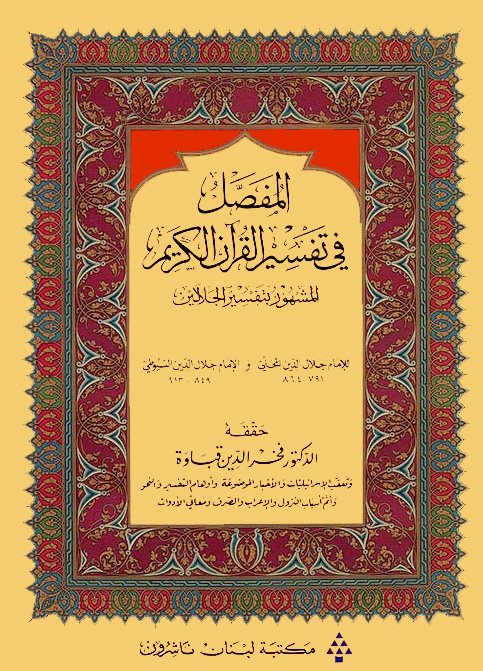 المفصّل
في تفسير القرآن الكريم
المشهور بتفسير الجلالين
للإمام جلال الدين المحلّي و الإمام جلال الدين السيوطي
٧٩١-٨٦٤ ٨٤٩-٩١٣
حققه
الدكتور فخر الدين قباوة
وتعقّب الإسرائيليات والأخبار الموضوعة وأوهام التفسير والنحو
وأتمّ أسباب النزول والإعراب والصرف ومعاني الأدوات
مكتبة لبنان ناشرون